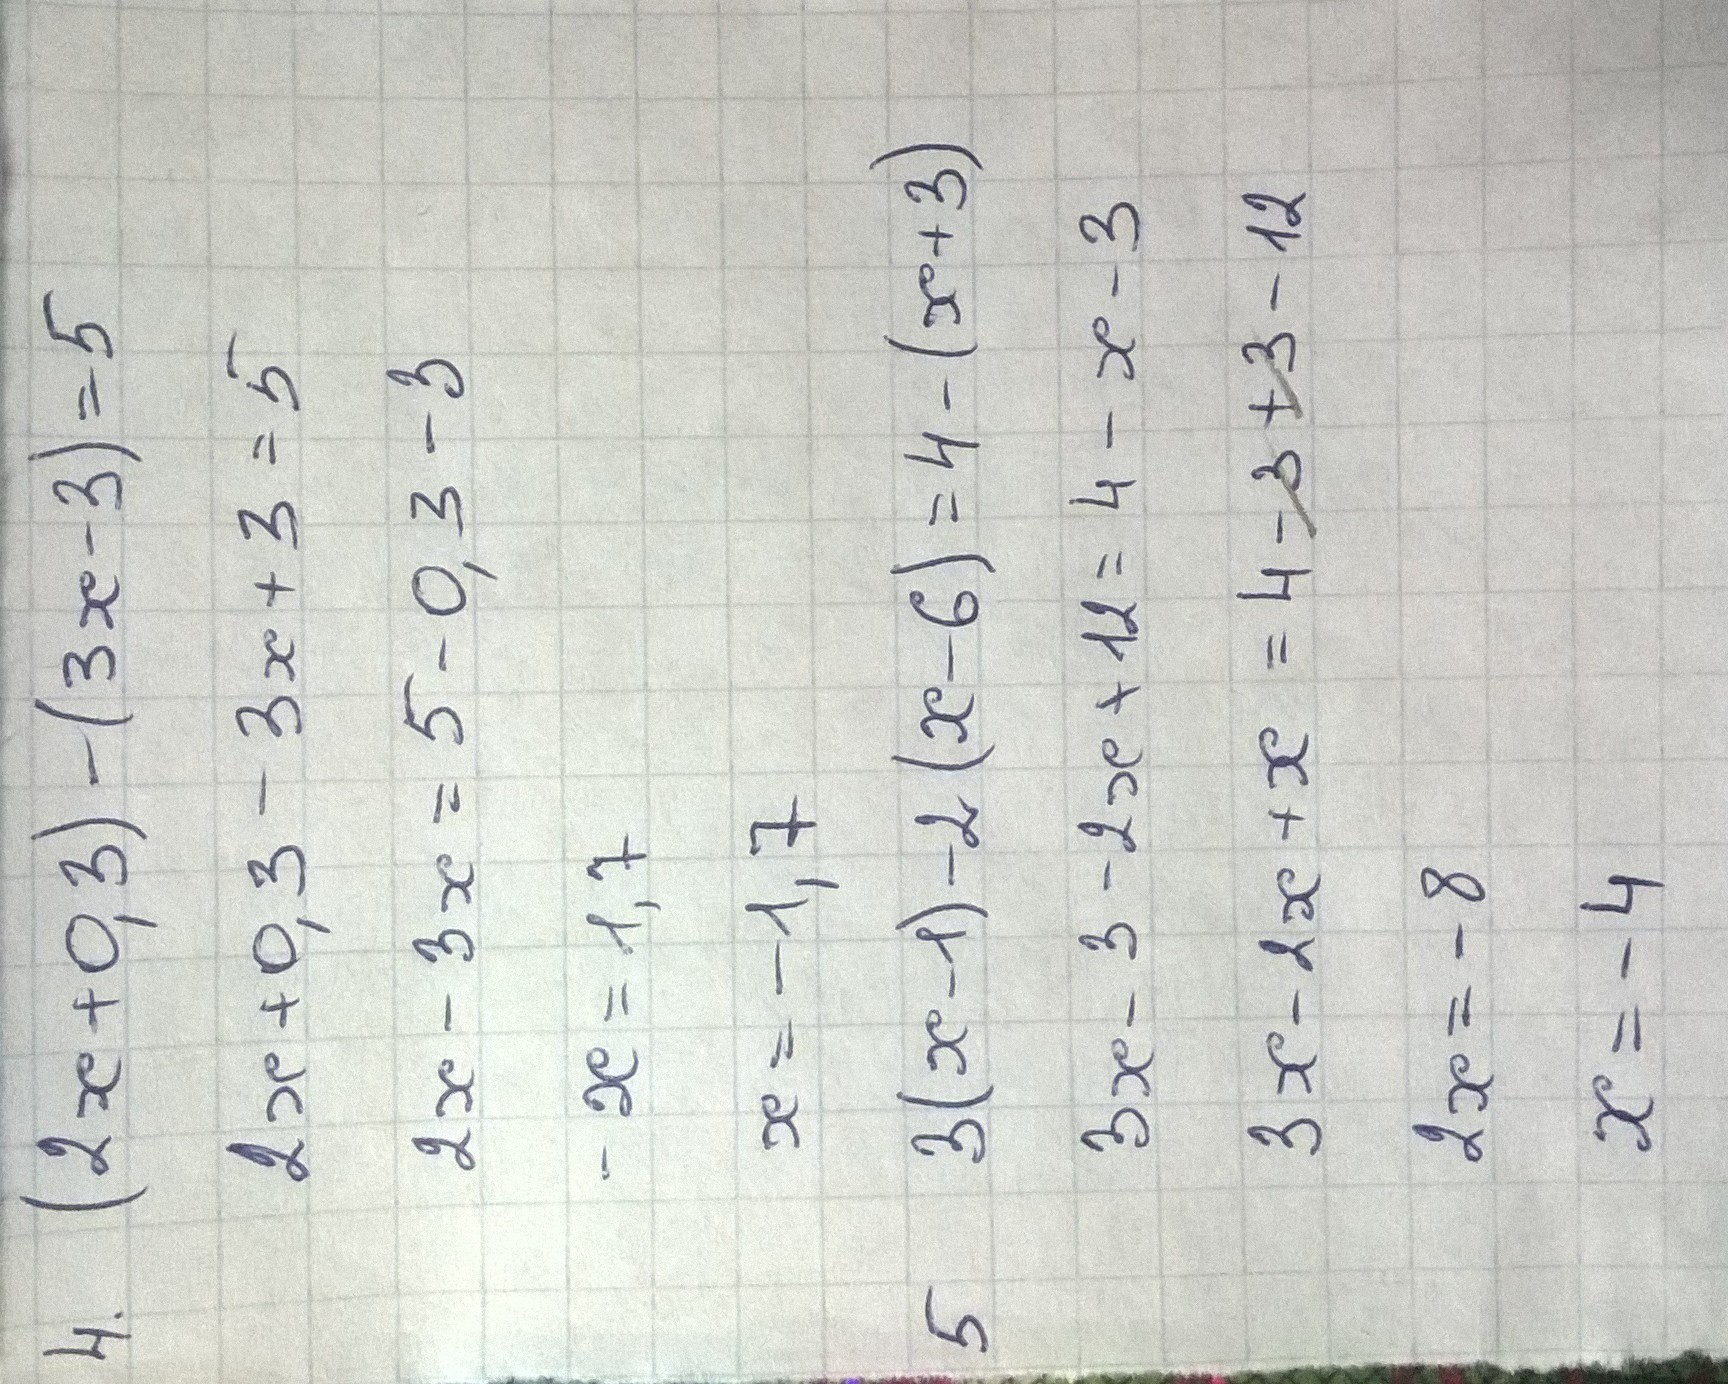 4. (2x+0,3)-(3x-3)=5
2x+0,3-3x+3=5
2x-3x=5-0,3-3
-x=1,7
x=-1,7
5 3(x-1)-2(x-6)=4-(x+3)
3x-3-2x+12=4-x-3
3x-2x+x=4-3+3-12
2x=-8
x=-4